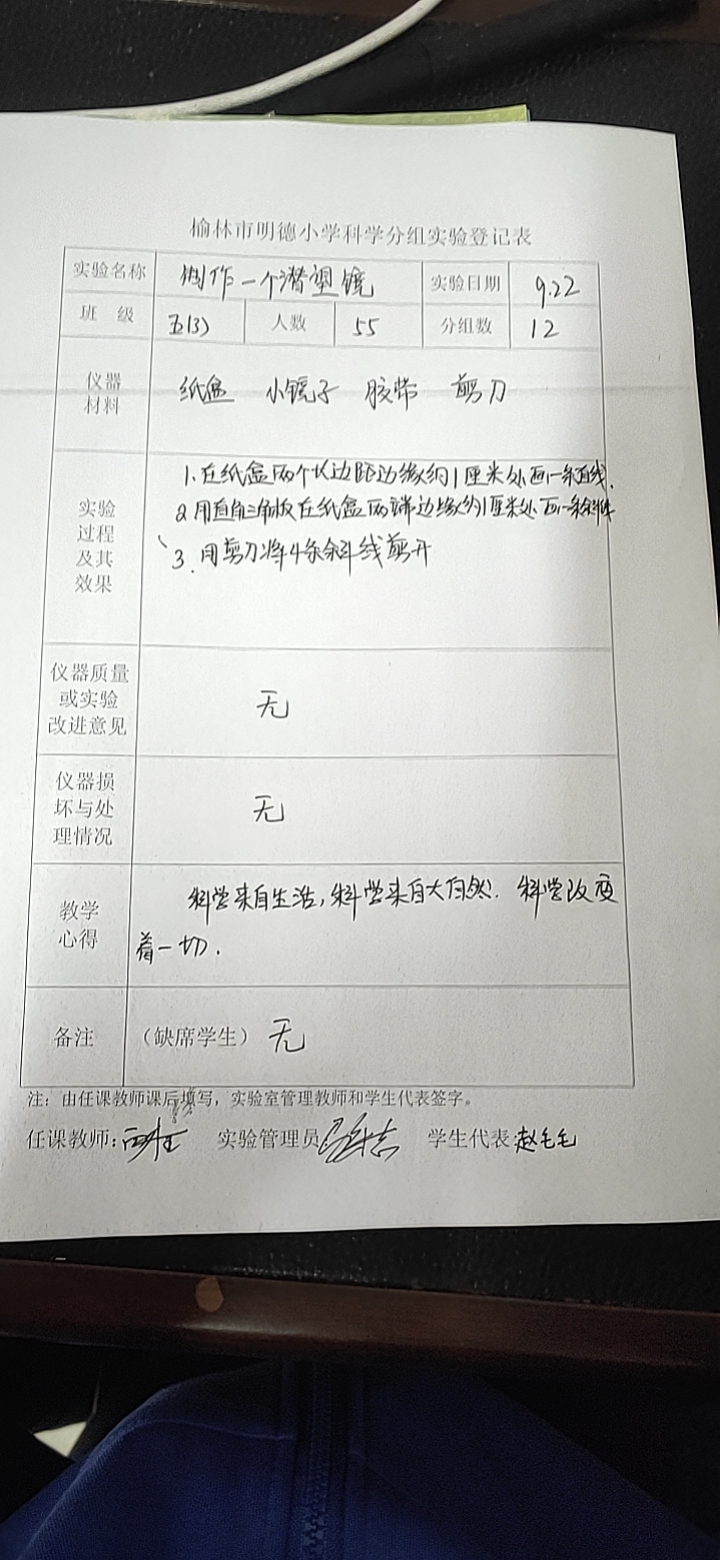 榆林市明德小学科学分组实验登记表
实验名称 制作一个潜望镜 实验日期 9.22
班 级 五(3) 人数 55 分组数 12
仪器 材料 纸盒 小镜子 胶带 剪刀
实验 过程 及其 效果
1.在纸盒两个长边距边缘约1厘米处画一条直线.
2 用直角三角板在纸盒两端边缘约1厘米处画一条斜线
3.用剪刀将4条斜线剪开
仪器质量
或实验
改进意见
无
仪器损
坏与处
理情况
无
教学
心得
科学来自生活,科学来自大自然.科学改变
着一切.
备注 (缺席学生) 无
注:由任课教师课后填写,实验室管理教师和学生代表签字。
任课教师: 实验管理员 学生代表:赵毛毛